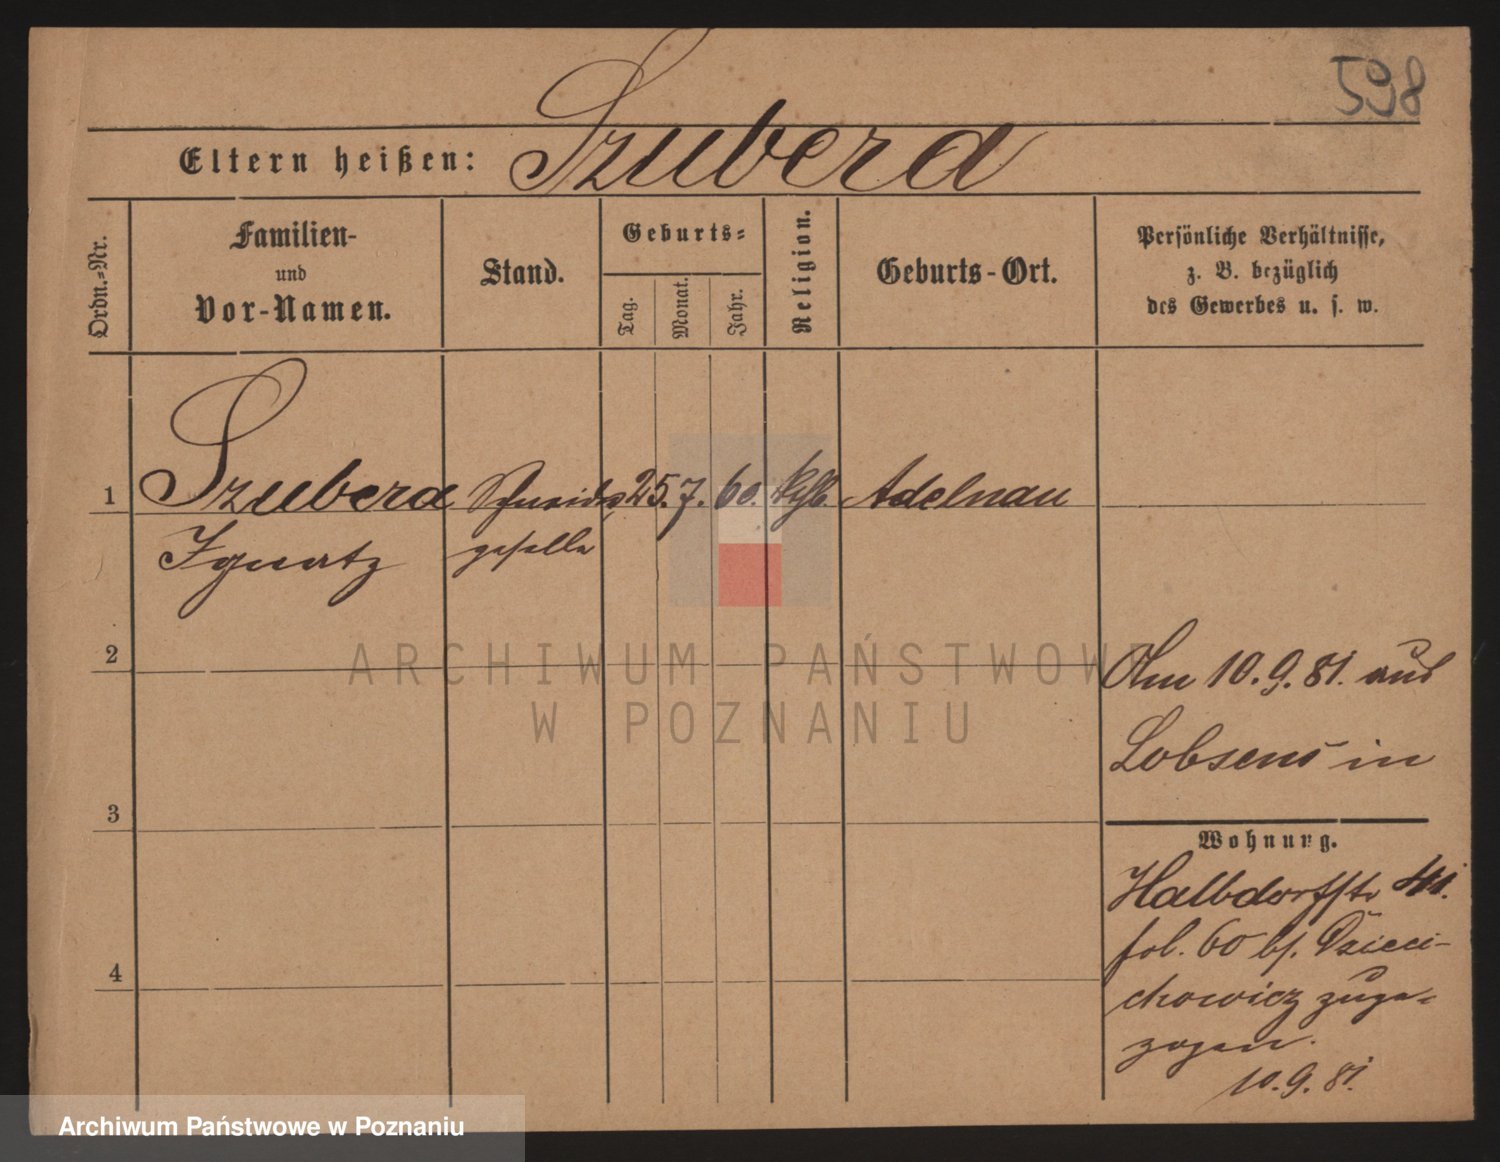 598
Eltern heißen: Szuberd
Ordn.-Nr.
Familien-
und
Vor-Namen.
Stand.
Geburts-
Tag.
Monat.
Jahr.
Religion.
Geburts-Ort.
Persönliche Verhältnisse,
z. B. bezüglich
des Gewerbes u. s. w.
1 Szuberd Schneider 25. 7. 60. kath. Adelnau
Ignatz geselle
2
Am 10. 9. 81. aus
Lobsens in
3
Wohnung.
Halbdorfstr 41.
fol. 60 bf. Dzieci-
chowicz zuge-
zogen.
4
10. 9. 81.
ARCHIWUM PAŃSTWOWE
W POZNANIU
Archiwum Państwowe w Poznaniu